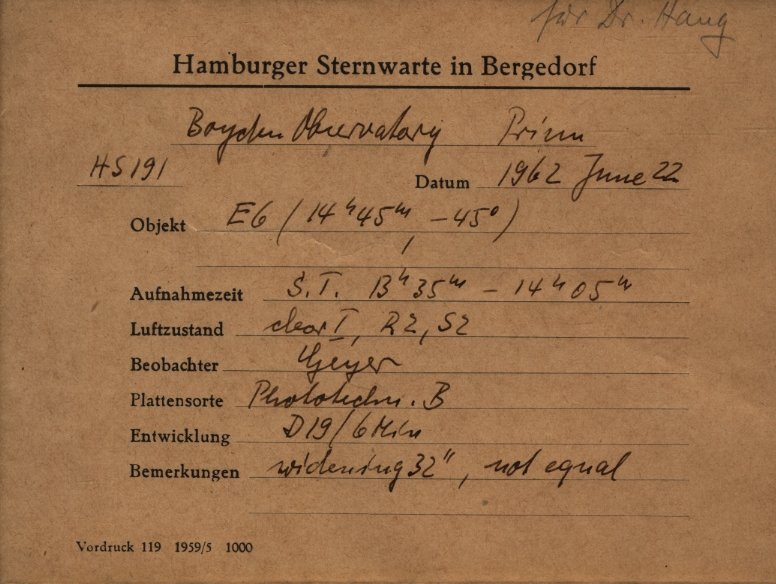 für Dr. Haug
Hamburger Sternwarte in Bergedorf
Boyden Observatory Prism
HS 191 Datum 1962 June 22
Objekt E6 (14ʰ45ᵐ, -45°)
Aufnahmezeit S.T. 13ʰ35ᵐ - 14ʰ05ᵐ
Luftzustand clear I, R2, S2
Beobachter Geyer
Plattensorte Phototechn. B
Entwicklung D19/6 Min
Bemerkungen widening 32", not equal
Vordruck 119 1959/5 1000